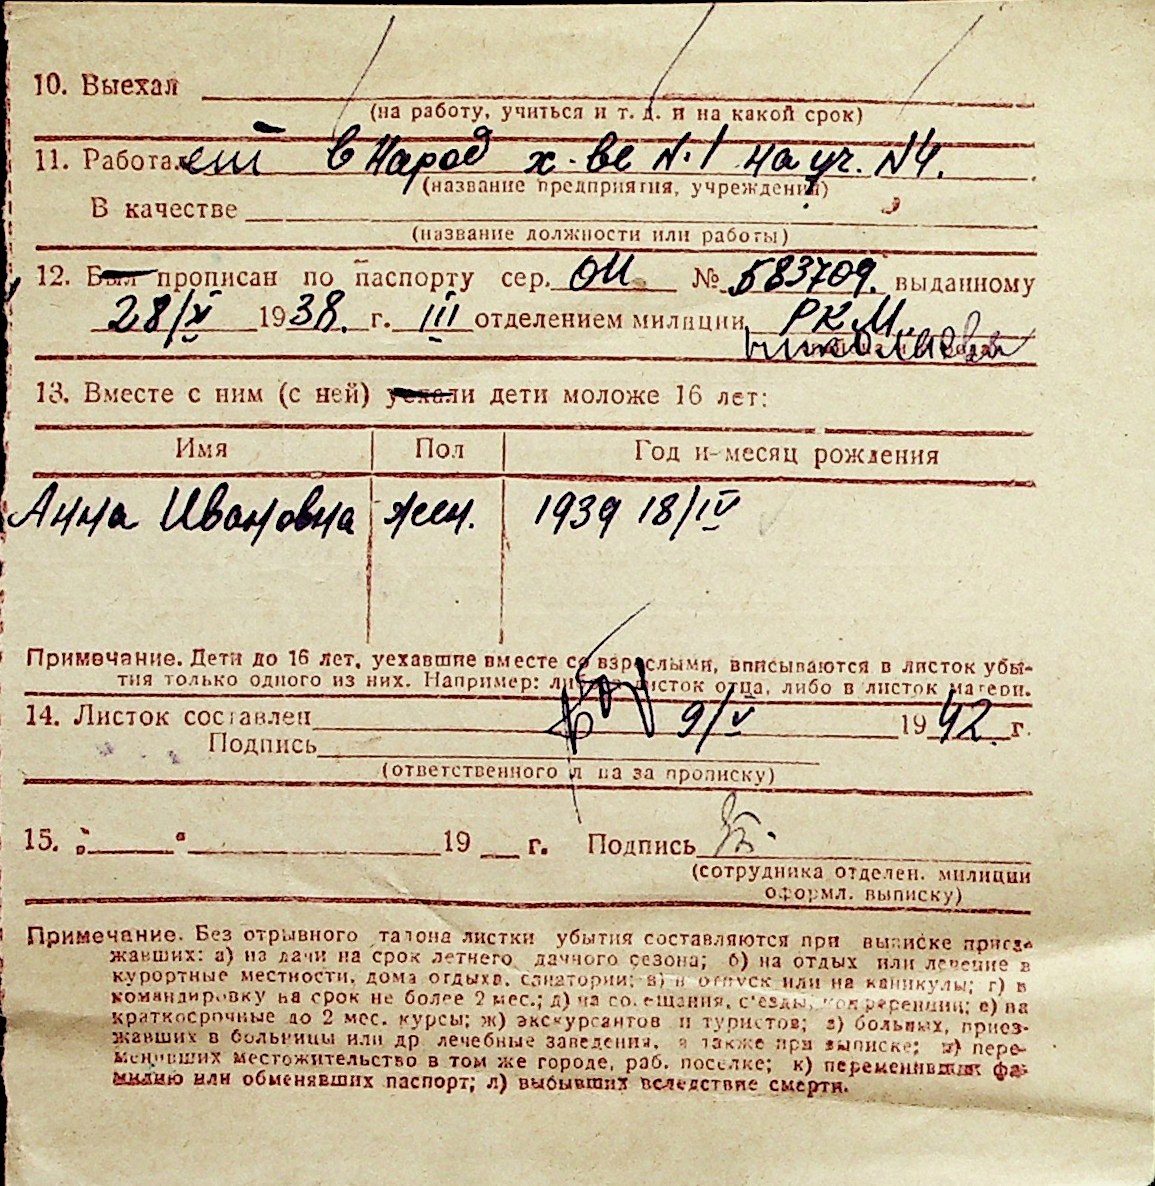 10. Выехал
(на работу, учиться и т. д. и на какой срок)
11. Работает в Народ х-ве N.1 на уч. N4.
(название предприятия, учреждения)
В качестве
(название должности или работы)
12. Был прописан по паспорту сер. ОИ № 583709. выданному
28/V 1938. г. III отделением милиции РКМ.
Николаева
13. Вместе с ним (с ней) уехали дети моложе 16 лет:
Имя Пол Год и месяц рождения
Анна Ивановна жен. 1939 18/IV
Примечание. Дети до 16 лет, уехавшие вместе со взрослыми, вписываются в листок убы-
тия только одного из них. Например: либо в листок отца, либо в листок матери.
14. Листок составлен 9/V 1942. г.
Подпись
(ответственного лица за прописку)
15. „ “ 19 г. Подпись
(сотрудника отделен. милиции
оформл. выписку)
Примечание. Без отрывного талона листки убытия составляются при выписке приез-
жавших: а) на дачи на срок летнего дачного сезона; б) на отдых или лечение в
курортные местности, дома отдыха, санатории; в) в отпуск или на каникулы; г) в
командировку на срок не более 2 мес.; д) на совещания, с'езды, конференции; е) на
краткосрочные до 2 мес. курсы; ж) экскурсантов и туристов; з) больных, приез-
жавших в больницы или др. лечебные заведения, а также при выписке; и) пере-
менивших местожительство в том же городе, раб. поселке; к) переменивших фа-
милию или обменявших паспорт; л) выбывших вследствие смерти.